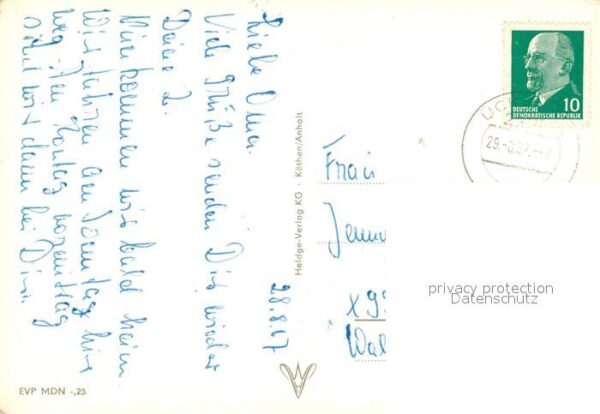 28.8.67
Liebe Oma.
Viele Grüße senden Dir wieder
Deine 2.
Nun kommen wir bald heim
Wir fahren am Samstag hier
weg. Am Montag vormittag
sind wir dann bei Dir.
Heldge-Verlag KG · Köthen/Anhalt
EVP MDN -,25
Frau
X 9
Wal
DEUTSCHE
DEMOKRATISCHE REPUBLIK
10
privacy protection
Datenschutz